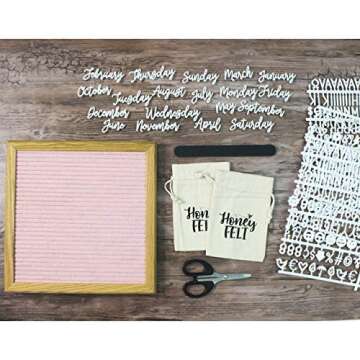 February Thursday Sunday March January
October Tuesday August July Monday Friday
December Wednesday May September
June November April Saturday
Honey
FELT
Honey
FELT